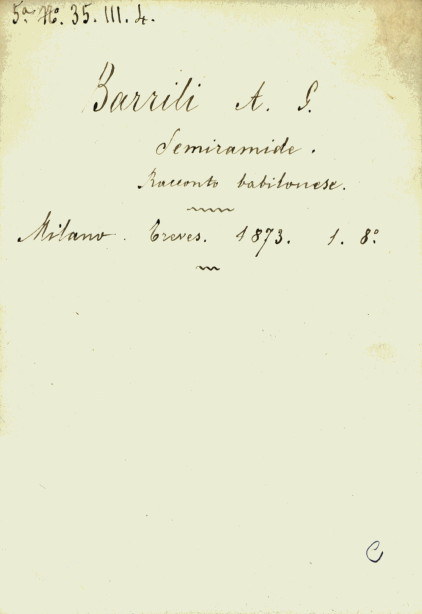 5ª Nº. 35. III. 4.
Barrili A. G.
Semiramide.
Racconto babilonese.
Milano. Treves. 1873. 1. 8º
C